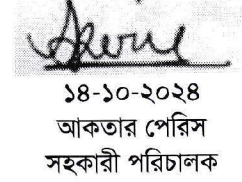 ১৪-১০-২০২৪
আকতার পেরিস
সহকারী পরিচালক